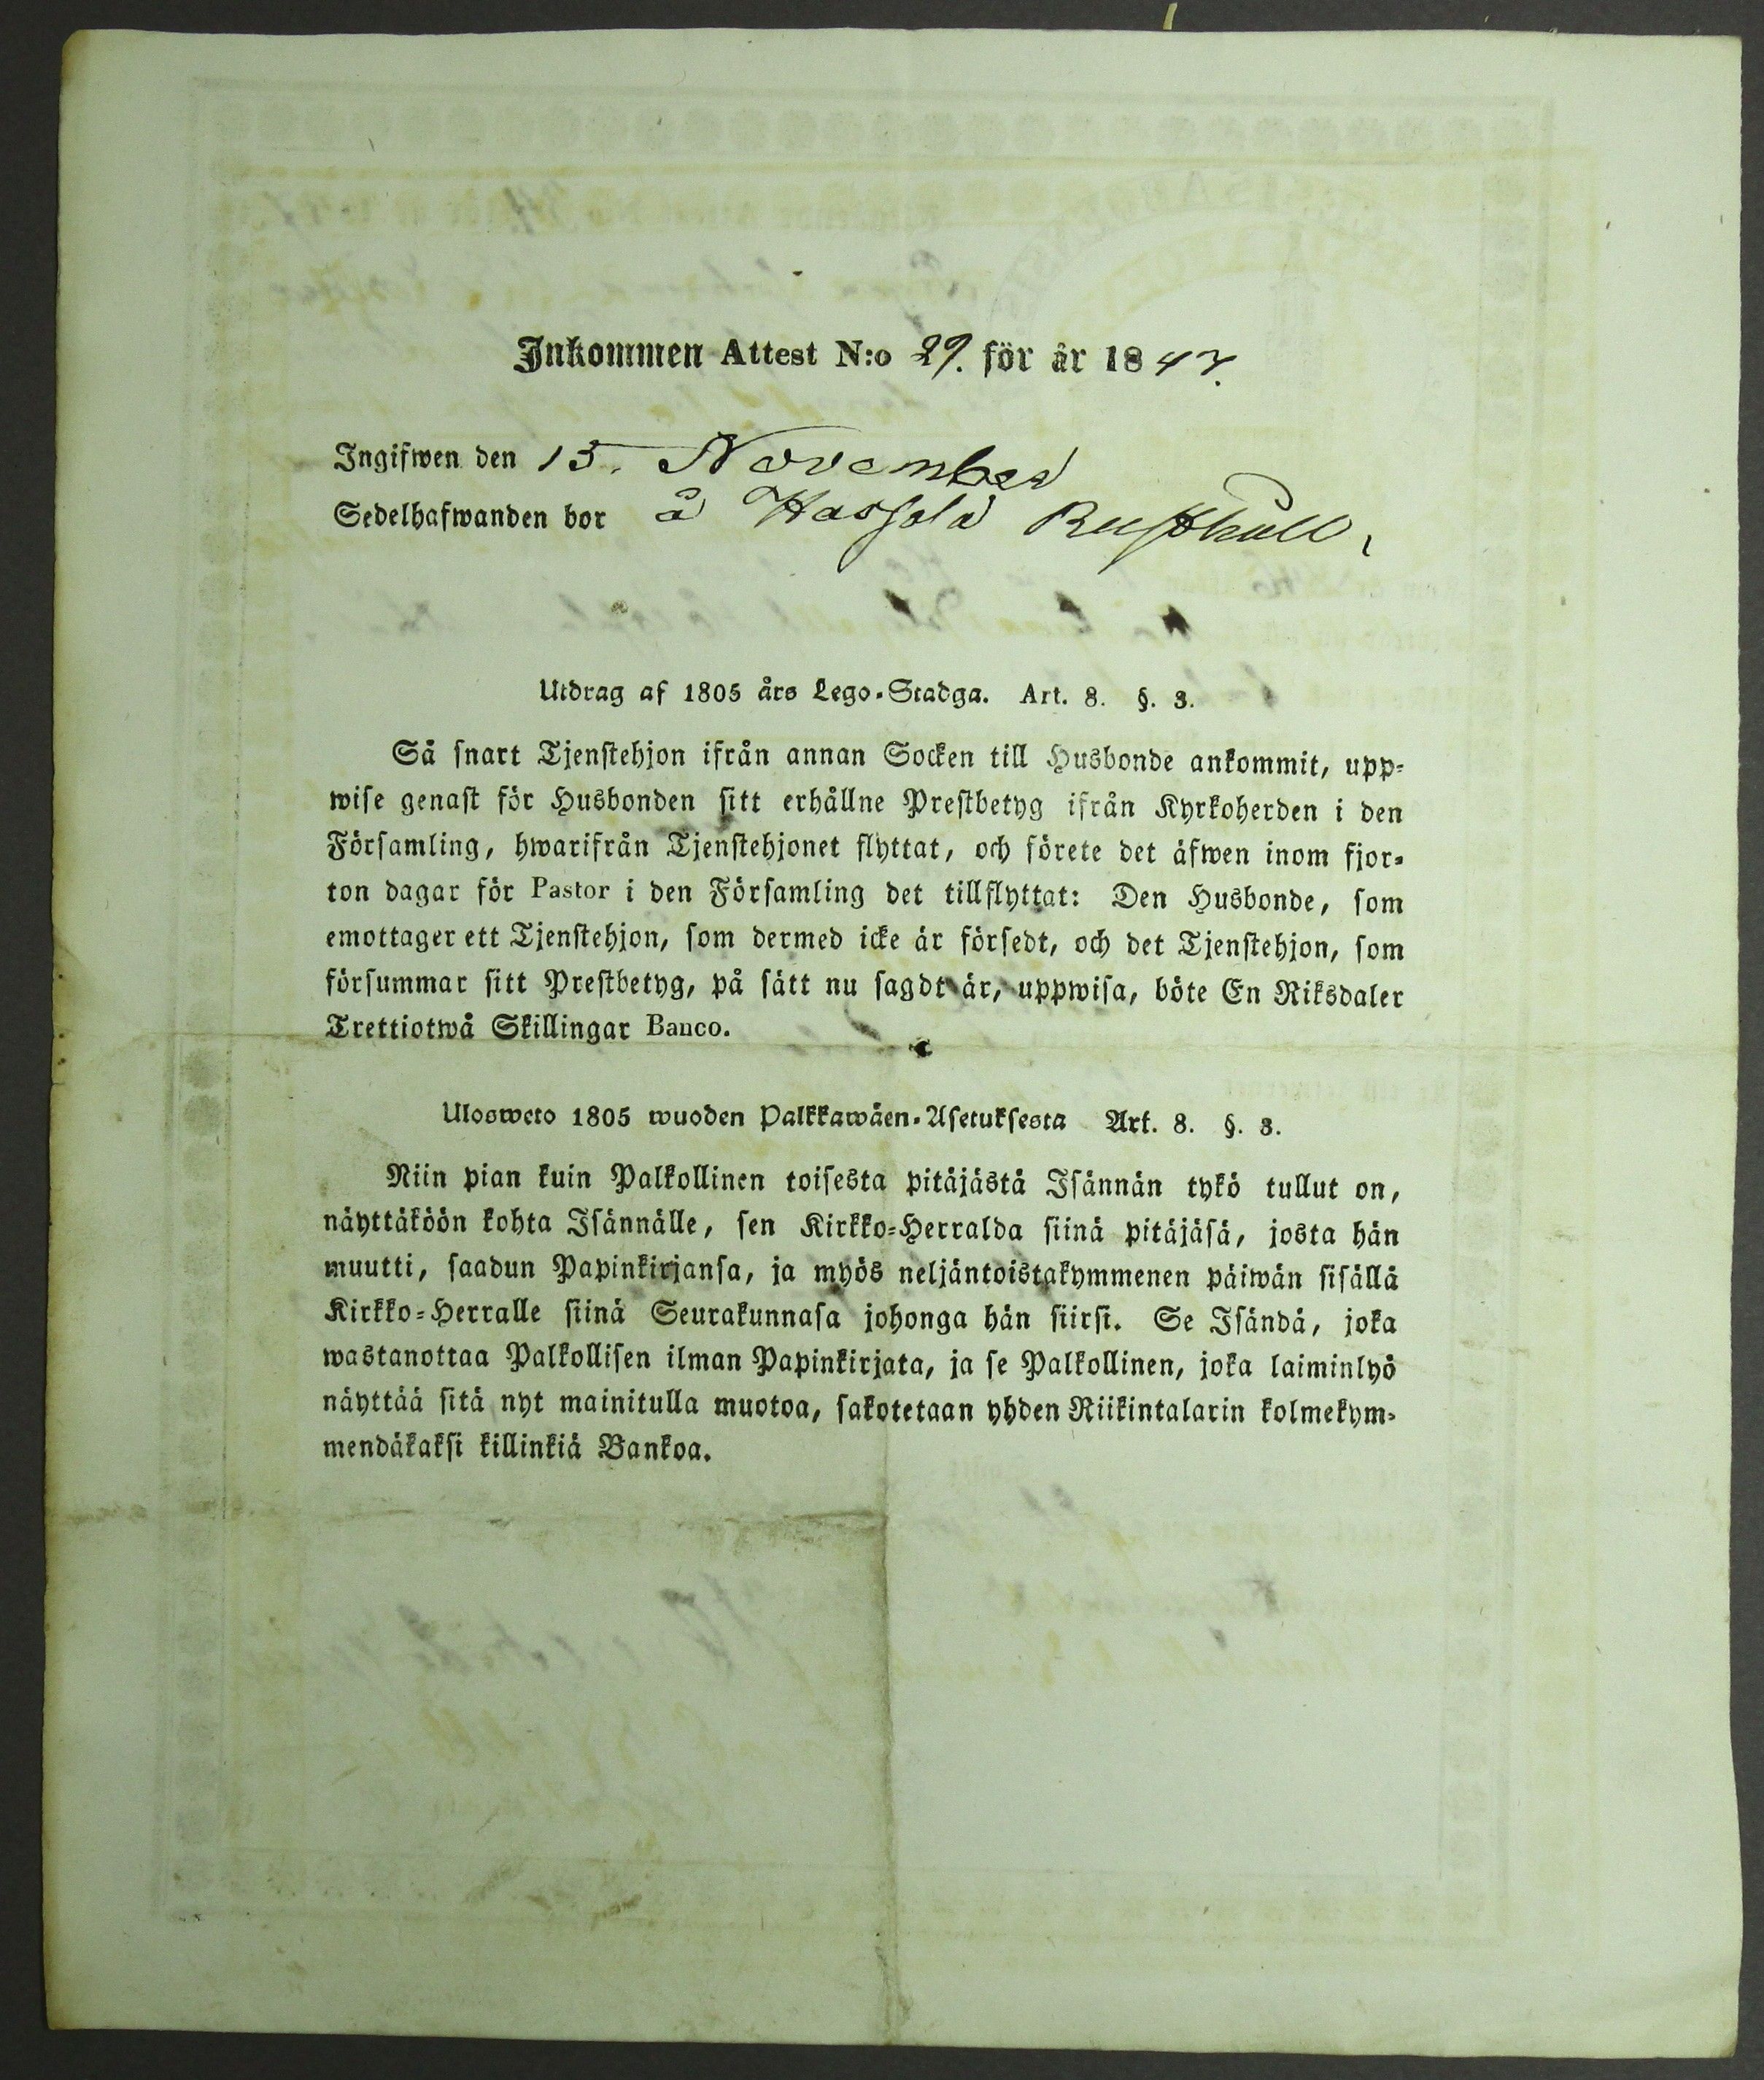 Inkommen Attest N:o 29. för år 1847.
Ingifwen den 15. November
Sedelhafwanden bor å Hassala Rusthåll,
Utdrag af 1805 års Lego-Stadga. Art. 8. §. 3.
Så snart Tjenstehjon ifrån annan Socken till Husbonde ankommit, upp-
wise genast för Husbonden sitt erhållne Prestbetyg ifrån Kyrkoherden i den
Församling, hwarifrån Tjenstehjonet flyttat, och förete det äfwen inom fjor-
ton dagar för Pastor i den Församling det tillflyttat: Den Husbonde, som
emottager ett Tjenstehjon, som dermed icke är försedt, och det Tjenstehjon, som
försummar sitt Prestbetyg, på sätt nu sagdt är, uppwisa, böte En Riksdaler
Trettiotwå Skillingar Banco.
Ulosweto 1805 wuoden Palkkawäen-Asetuksesta Art. 8. §. 3.
Niin pian kuin Palkollinen toisesta pitäjästä Isännän tykö tullut on,
näyttäköön kohta Isännälle, sen Kirkko-Herralda siinä pitäjäsä, josta hän
muutti, saadun Papinkirjansa, ja myös neljäntoistakymmenen päiwän sisällä
Kirkko-Herralle siinä Seurakunnasa johonga hän siirsi. Se Isändä, joka
wastanottaa Palkollisen ilman Papinkirjata, ja se Palkollinen, joka laiminlyö
näyttää sitä nyt mainitulla muotoa, sakotetaan yhden Riikintalarin kolmekym-
mendäkaksi killinkiä Bankoa.